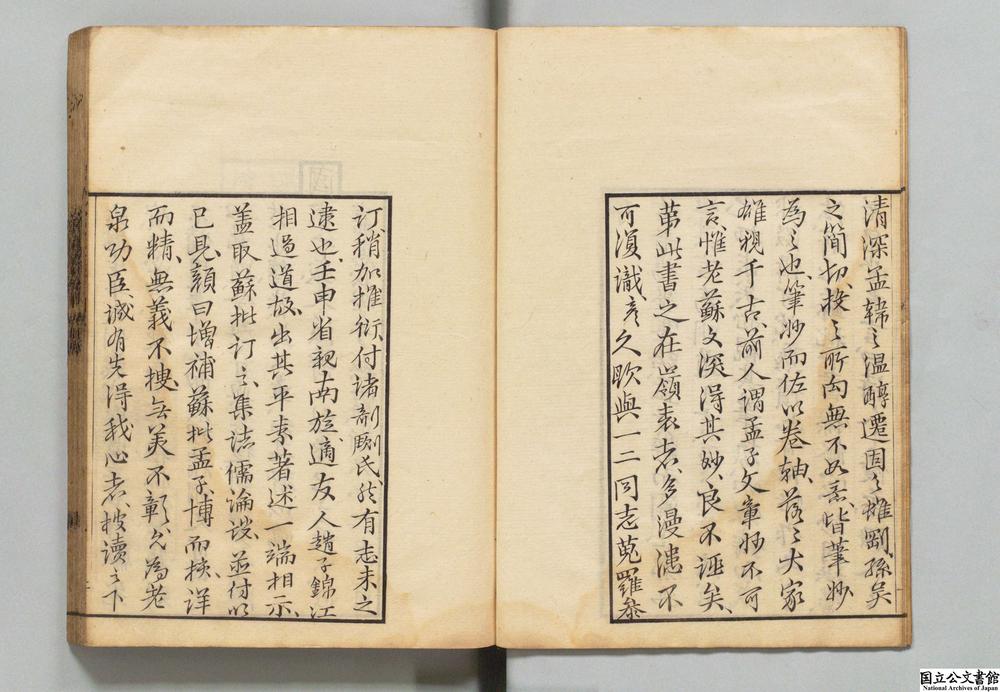 清深孟韓之溫醇遷固之雄剛孫吳
之簡切投之所向無不如意皆筆妙
為之也筆妙而佐以卷軸落之大家
雄視千古前人謂孟子文章妙不可
言惟老蘇文深得其妙良不誣矣
第此書之在嶺表者多漫漶不
可復識彥之欣與一二同志蒐羅參
訂稍加推衍付諸剞劂氏然有志未之
逮也壬申省親南旋適友人趙子錦江
相過道故出其平素著述一端相示
蓋取蘇批訂之集諸儒論說並付以
已見顏曰增補蘇批孟子博而核詳
而精無義不搜無美不彰允為老
泉功臣誠有先得我心者披讀之下
国立公文書館
National Archives of Japan